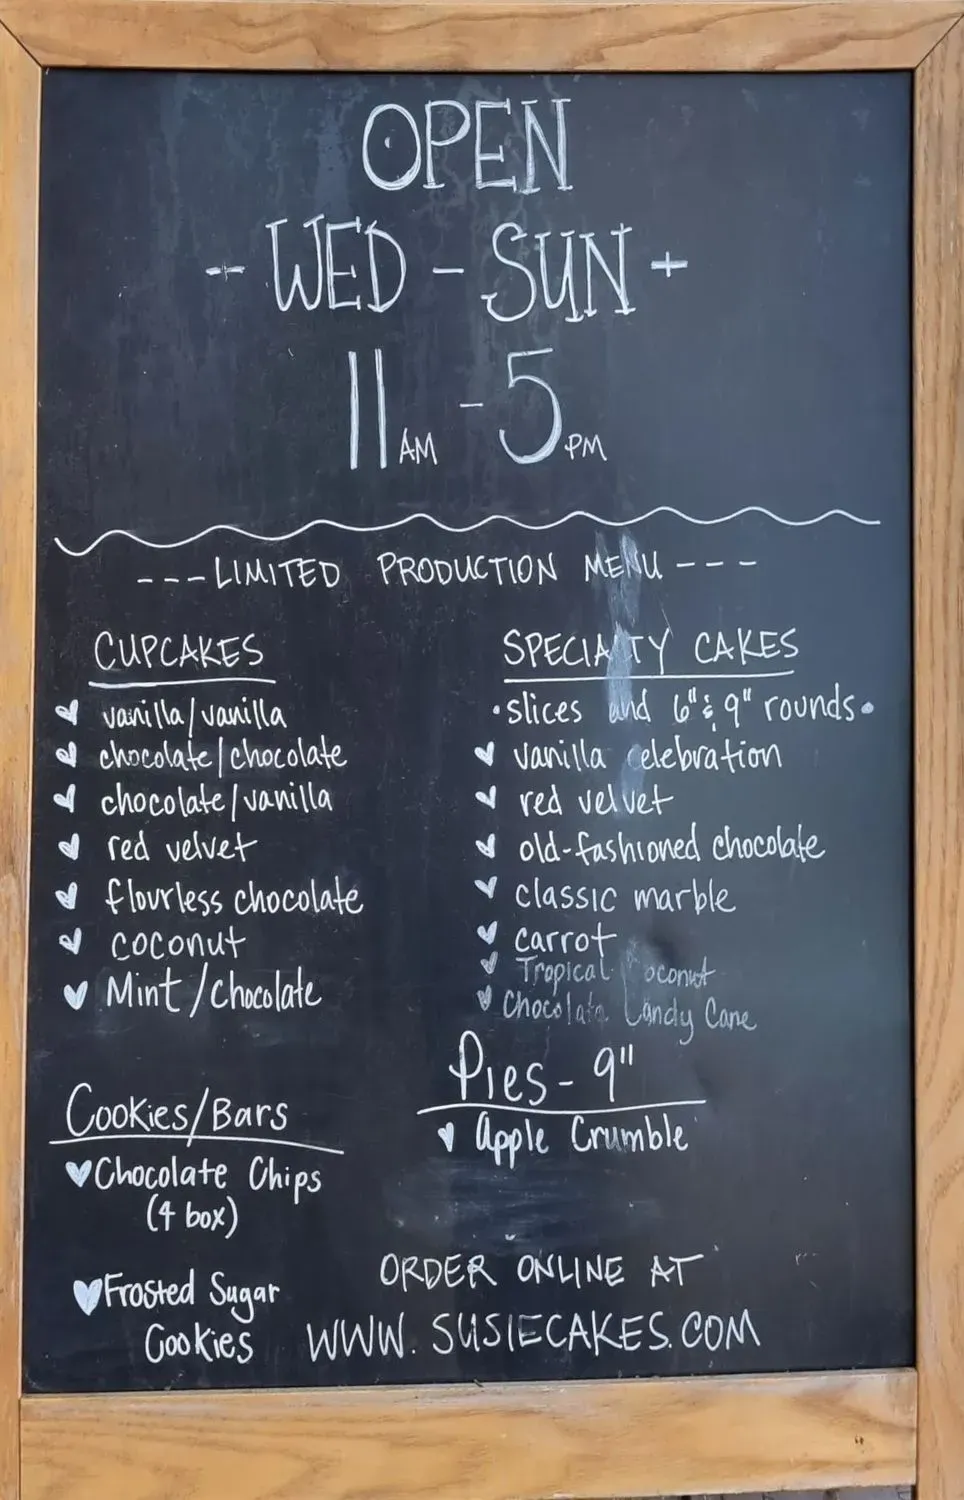 OPEN
- WED - SUN +
11 AM - 5 PM
--- LIMITED PRODUCTION MENU ---
CUPCAKES
vanilla/vanilla
chocolate/chocolate
chocolate/vanilla
red velvet
flourless chocolate
coconut
Mint/Chocolate
Cookies/Bars
Chocolate Chips
(4 box)
Frosted Sugar
Cookies
SPECIALTY CAKES
•slices and 6" & 9" rounds•
vanilla celebration
red velvet
old-fashioned chocolate
classic marble
carrot
Tropical Coconut
Chocolate Candy Cane
Pies - 9"
Apple Crumble
ORDER ONLINE AT
WWW.SUSIECAKES.COM